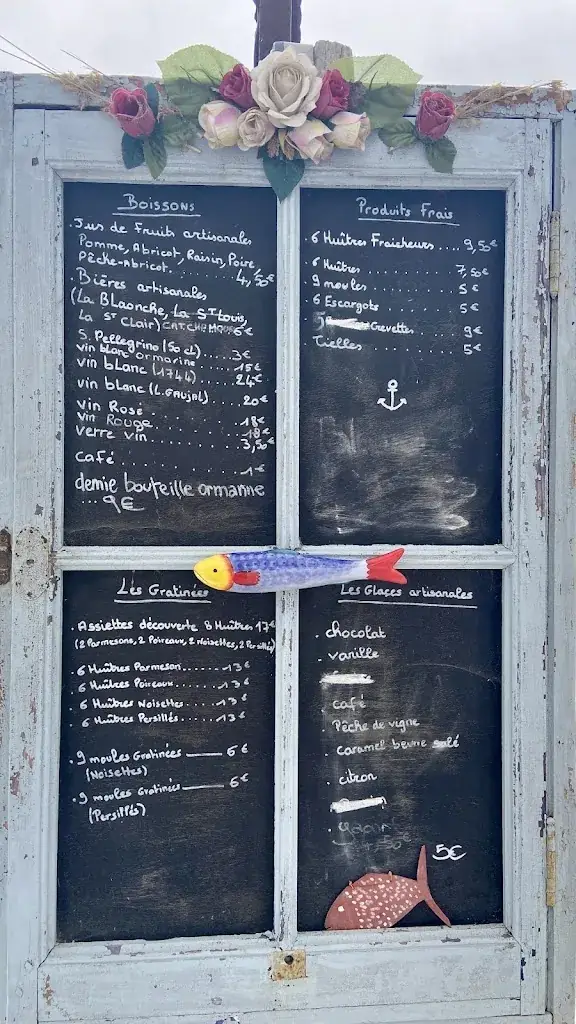 Boissons
. Jus de Fruits artisanales
Pomme, Abricot, Raisin, Poire,
Pêche-Abricot. ........ 4,50€
. Bières artisanales
(La Blaonche, La St Louis,
La St Clair) 6€
S. Pellegrino (50 cl) .... 3€
vin blanc ormarine ...... 15€
vin blanc (1744) ..... 24€
vin blanc (L. GAUJAL) ... 20€
vin Rosé ......... 18€
vin Rouge ....... 18€
verre vin ....... 3,50€
café ......... 1€
demie bouteille ormanne
... 9€
Produits Frais
. 6 Huîtres Fraicheurs .... 9,50€
. 6 Huîtres ......... 7,50€
. 9 moules ........ 5€
. 6 Escargots ....... 5€
Crevettes ..... 9€
Tielles ........ 5€
Les Gratinées
. Assiettes découverte 8 Huîtres 17€
(2 Parmesons, 2 Poireaux, 2 Noisettes, 2 Persillés)
. 6 Huîtres Parmesan ....... 13€
. 6 Huîtres Poireaux ...... 13€
. 6 Huîtres Noisettes ..... 13€
. 6 Huîtres Persillés ..... 13€
. 9 moules Gratinées —— 6€
(Noisettes)
. 9 moules Gratinés —— 6€
(Persillés)
Les Glaçes artisanales
. chocolat
. vanille
. café
. Pêche de vigne
. caramel beurre salé
. citron
5€